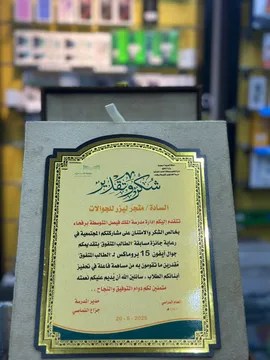 شكر وتقدير
السادة / متجر ليزر للجوالات
تتقدم إليكم إدارة مدرسة الملك فيصل المتوسطة برفحاء
بخالص الشكر والامتنان على مشاركتكم المجتمعية في
رعاية جائزة مسابقة الطالب المتفوق بتقديمكم
جوال آيفون 15 بروماكس لـ الطالب المتفوق
مقدرين ما تقومون به من مساهمة فاعلة في تحفيز
أبنائكم الطلاب .. سائلين الله أن يديم عليكم نعمته
متمنين لكم دوام التوفيق والنجاح ..
مدير المدرسة